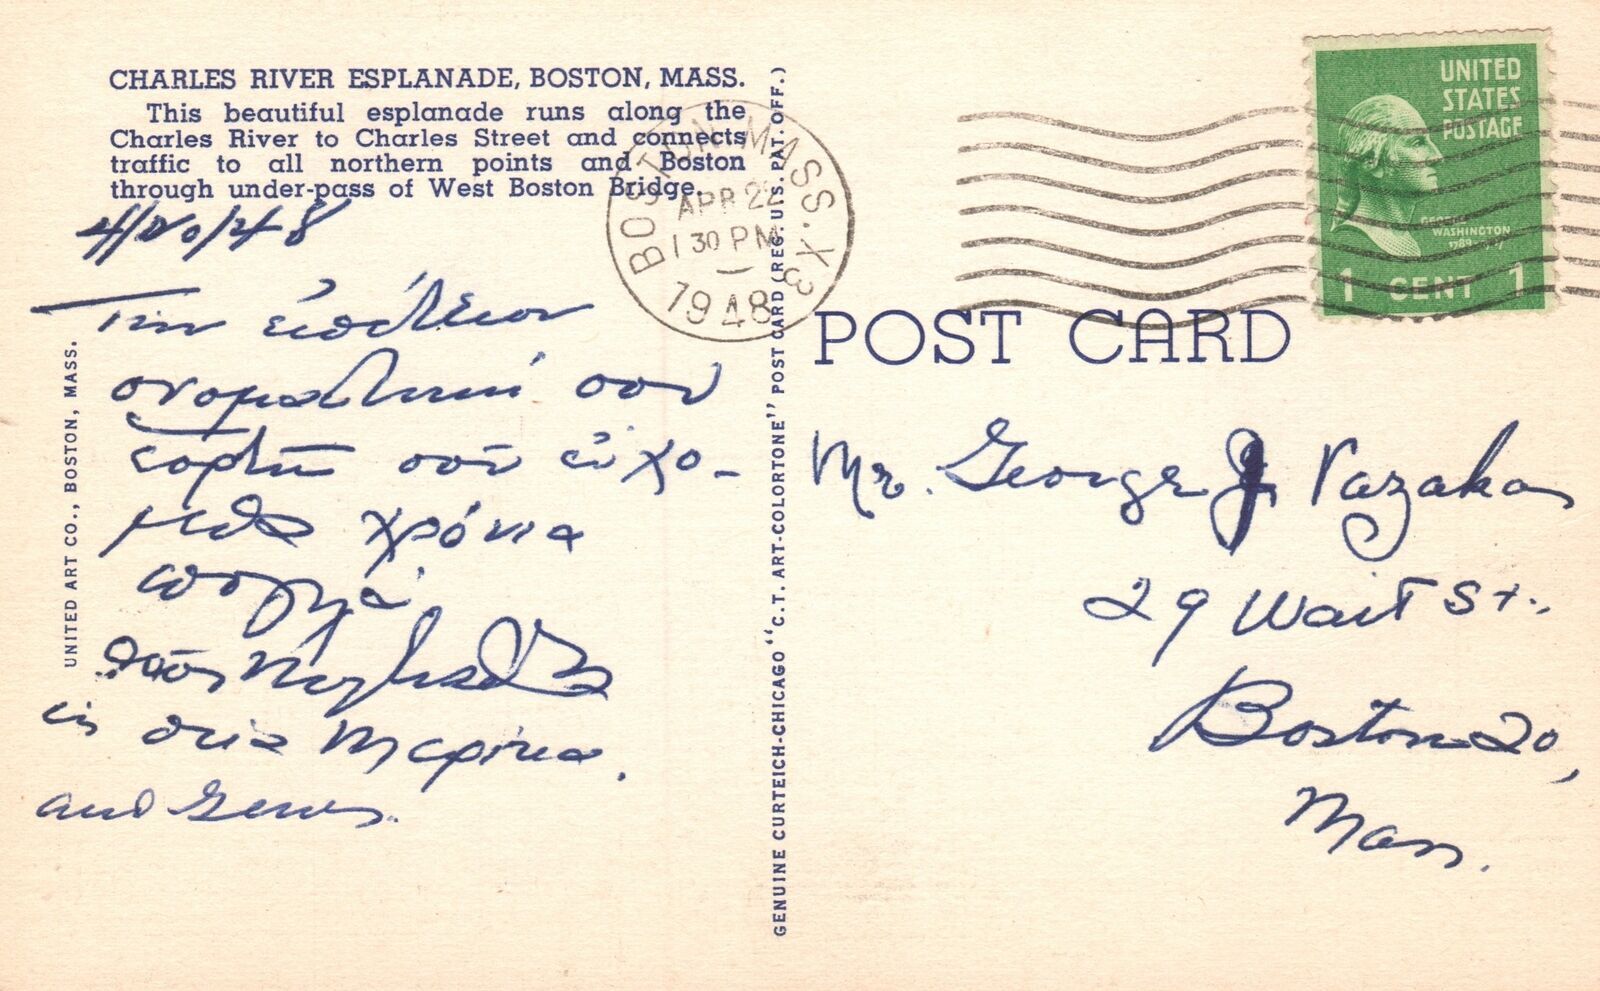 CHARLES RIVER ESPLANADE, BOSTON, MASS.
This beautiful esplanade runs along the
Charles River to Charles Street and connects
traffic to all northern points and Boston
through under-pass of West Boston Bridge.
4/20/48
Την ἐπόλειον
ονομαστική σου
εορτήν σου εὐχο-
μεθα χρόνια
πολλά
θεία Μαρίκα.
and
UNITED ART CO., BOSTON, MASS.
GENUINE CURTEICH-CHICAGO "C.T. ART-COLORTONE" POST CARD (REG. U.S. PAT. OFF.)
BOSTON, MASS. X3
APR 22
1 30 PM
1948
UNITED
STATES
POSTAGE
GEORGE
WASHINGTON
1789-
1 CENT 1
POST CARD
Mr. George J. Vazakas
29 Wait St.,
Boston 20,
Mass.